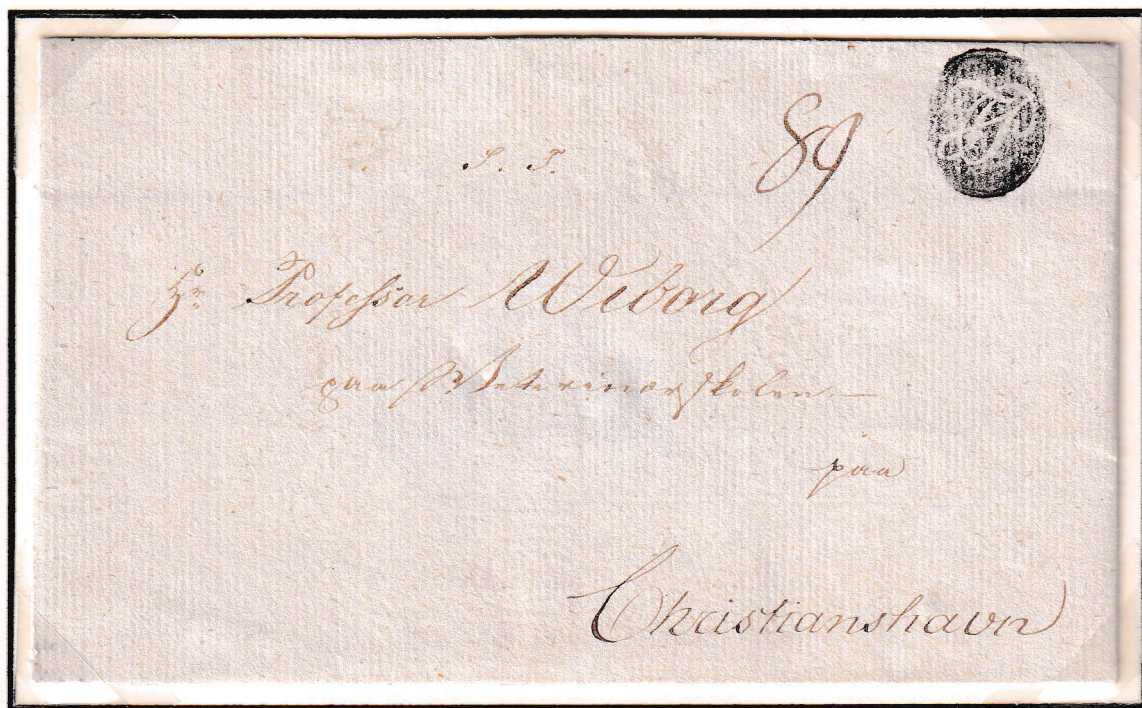 S. T.
89
Hr Professor Wiborg
paa Veterinærskolen
paa
Christianshavn